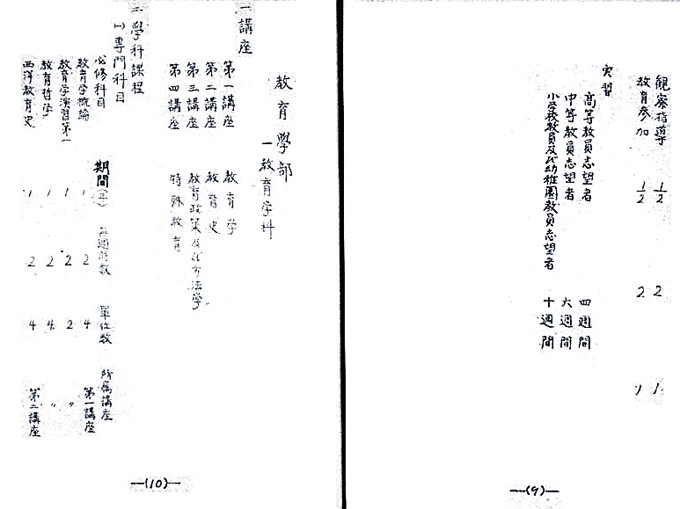 観察指導 1/2 2 1
教育参加 1/2 2 1
実習
高等教員志望者 四週間
中等教員志望者 六週間
小学校教員及び幼稚園教員志望者 十週間
—(9)—
教育學部
一教育学科
一講座
第一講座 教育学
第二講座 教育史
第三講座 教育政策及び方法学
第四講座 特殊教育
二學科課程
(一)専門科目
必修科目 期間(年) 毎週時数 單位数 所属講座
教育学概論 1 2 4 第一講座
教育学演習第一 1 2 2 〃
教育哲学 1 2 4 〃
西洋教育史 1 2 4 第二講座
—(10)—